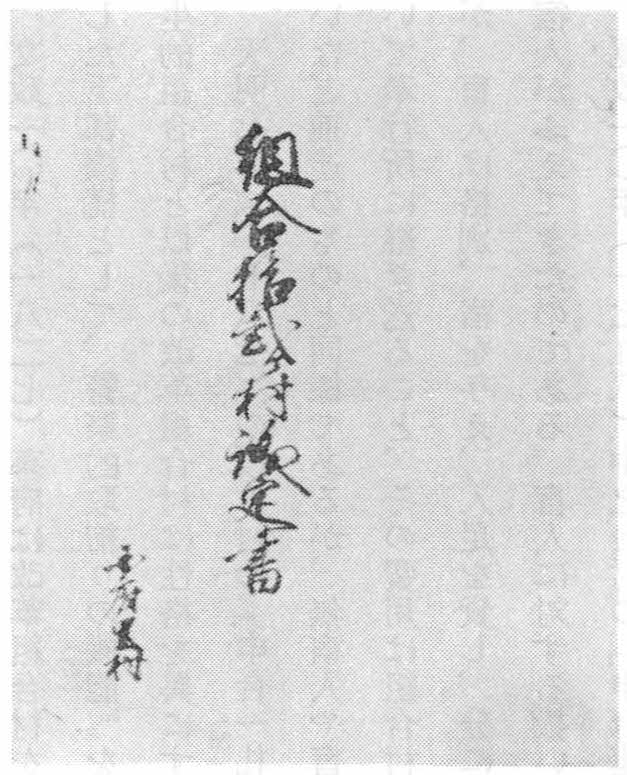 組合拾弐ヶ村議定書
村